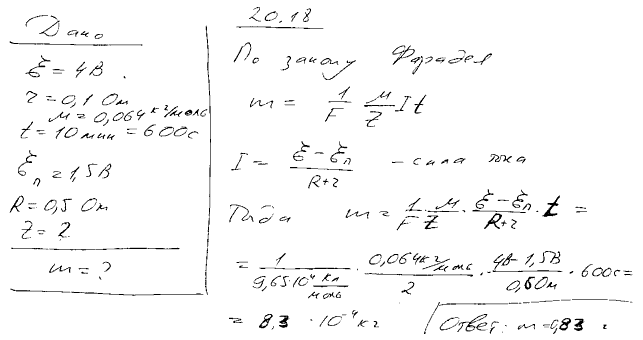 20.18
Дано
ℰ = 4 В.
r = 0,1 Ом
μ = 0,064 кг/моль
t = 10 мин = 600 с
ℰп = 1,5 В
R = 0,5 Ом
Z = 2
m = ?
По закону Фарадея
m = 1/F μ/Z I t
I = (ℰ − ℰп)/(R+r) – сила тока
Тогда m = 1/F · μ/Z · (ℰ − ℰп)/(R+r) · t =
= 1/(9,65·10⁴ Кл/моль) · (0,064 кг/моль)/2 · (4В − 1,5В)/(0,6 Ом) · 600 с =
= 8,3 · 10⁻⁴ кг
Ответ: m = 0,83 г